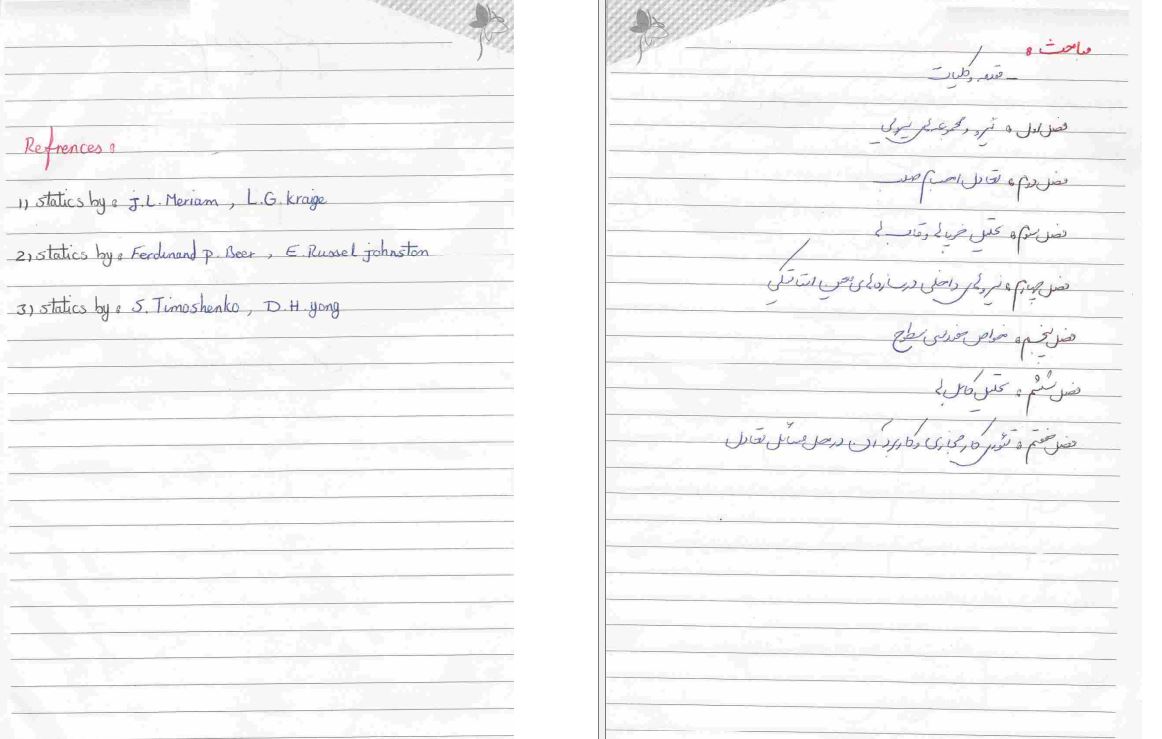 Refrences :
1) statics by : J.L. Meriam , L.G. kraige
2) statics by : Ferdinand p. Beer , E. Russel johnston
3) statics by : S. Timoshenko , D.H. yong
مباحث :
- مقدمه و کلیات
فصل اول : نیرو و مجموعه های نیرویی
فصل دوم : تعادل اجسام صلب
فصل سوم : تحلیل خرپاها و قاب ها
فصل چهارم : نیروهای داخلی در سازه های معین استاتیکی
فصل پنجم : خواص هندسی سطوح
فصل ششم : تحلیل کابل ها
فصل هفتم : تئوری کار مجازی و کاربرد آن در حل مسائل تعادل